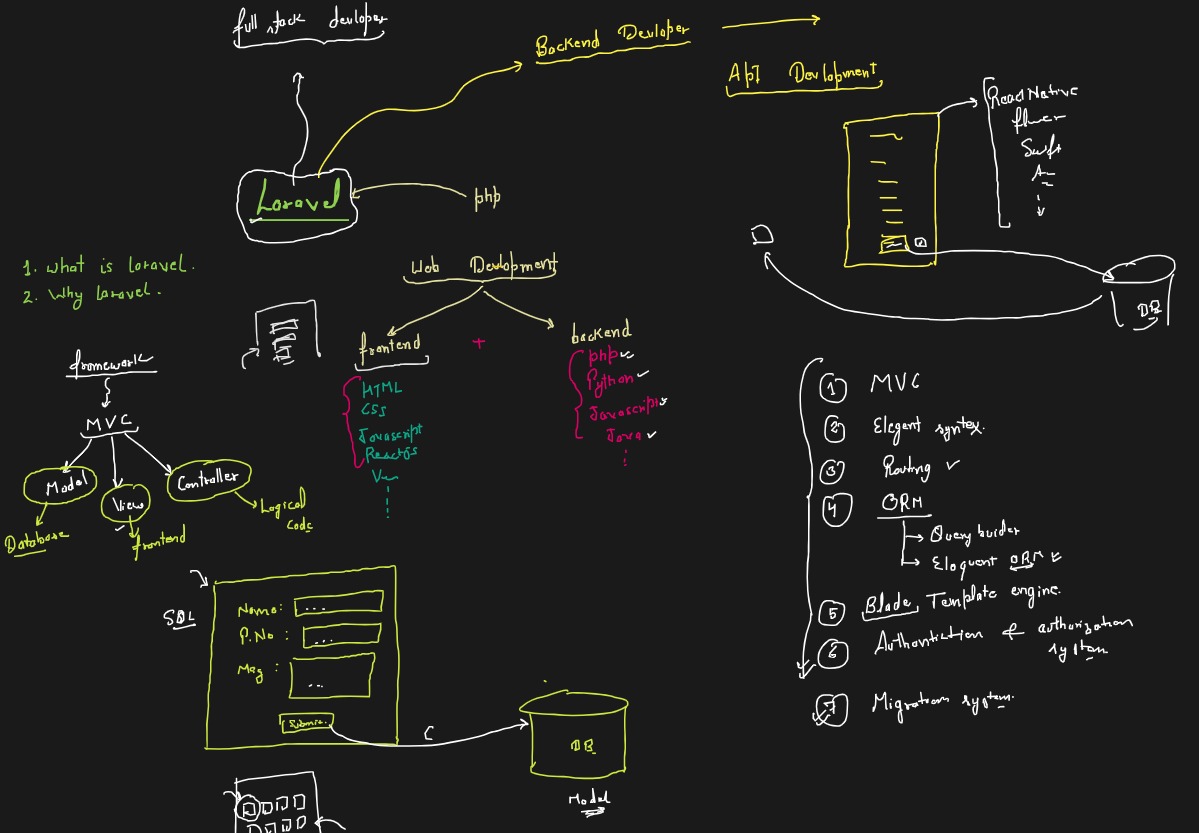 full stack devloper
Backend Devloper
API Devlopment
React Native
Swift
Laravel
php
1. What is laravel.
2. Why laravel.
Web Devlopment
frontend
+
backend
HTML
CSS
Javascript
Reactjs
php
Python
Javascript
Java
DB
framework
MVC
Model
View
Controller
Database
frontend
Logical
code
1 MVC
2 Elegent syntex.
3 Routing
4 ORM
Query buider
Eloquent ORM
5 Blade Template engine.
6 & authorization
system
7 system.
SQL
Name: ...
P.No : ...
Msg : ...
Submit.
C
DB
Model